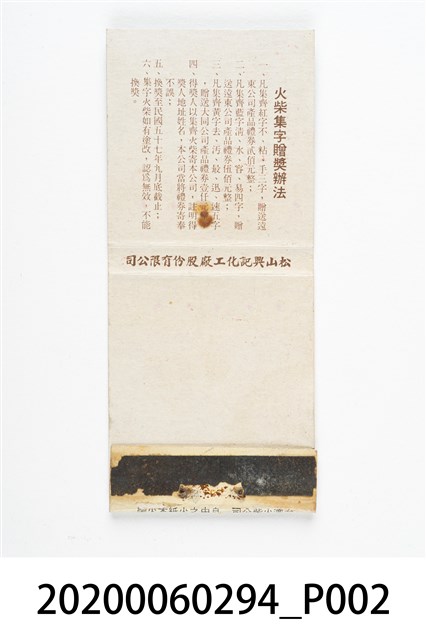 火柴集字贈獎辦法
一、凡集齊紅字不、粘、手三字，贈送遠
東公司產品禮券貳佰元整；
二、凡集齊藍字清、水、容、易四字，贈
送遠東公司產品禮券伍佰元整；
三、凡集齊黃字去、汚、最、迅、速五字
，贈送大同公司產品禮券壹仟
四、得獎人以集齊火柴寄本公司，註明得
獎人地址姓名，本公司當將禮券寄奉
不誤；
五、換獎至民國五十七年九月底截止；
六、集字火柴如有塗改，認爲無效，不能
換獎。
松山興記化工廠股份有限公司
20200060294_P002